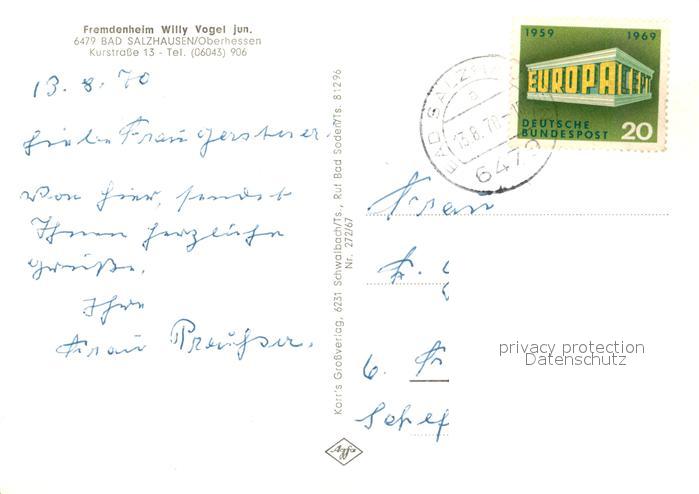 Fremdenheim Willy Vogel jun.
6479 BAD SALZHAUSEN/Oberhessen
Kurstraße 13 - Tel. (06043) 906
13. 8. 70
Liebe Frau
Von hier, sendet
Ihnen herzliche
Grüße.
Ihre
Frau
Karr's Großverlag, 6231 Schwalbach/Ts., Ruf Bad Soden/Ts. 81296
Nr. 272/67
Agfa
1959 1969
EUROPA CEPT
DEUTSCHE
BUNDESPOST 20
BAD SALZ
a
13.8.70
6479
Frau
6. Fr
privacy protection
Datenschutz